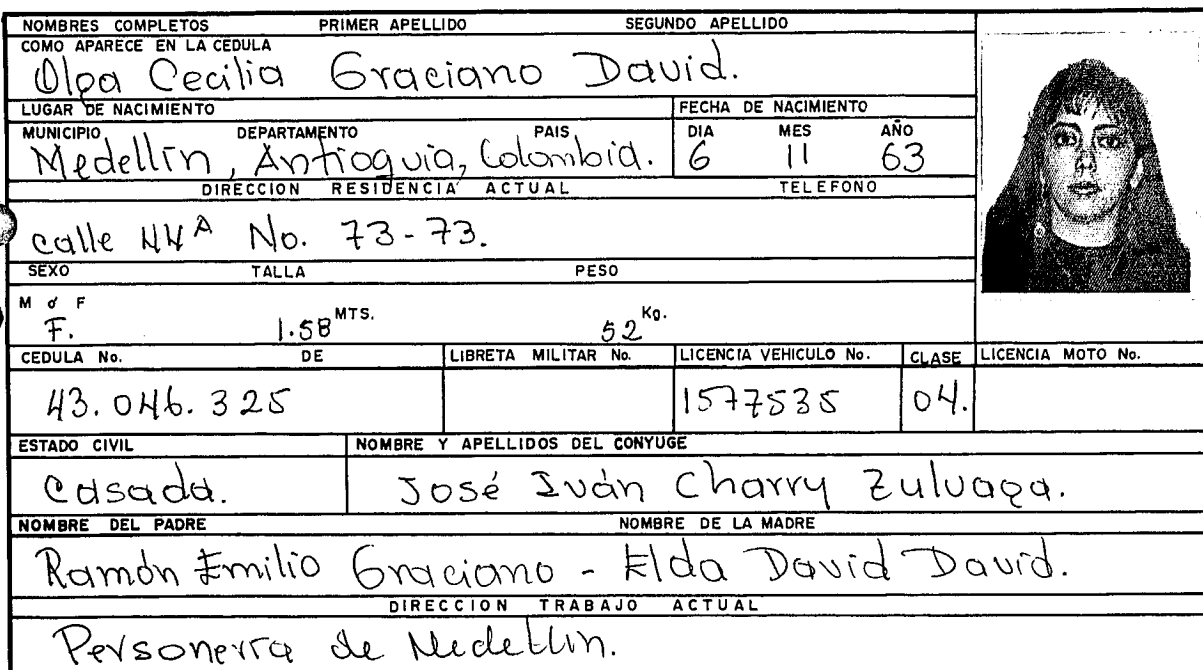 NOMBRES COMPLETOS PRIMER APELLIDO SEGUNDO APELLIDO
COMO APARECE EN LA CEDULA
Olga Cecilia Graciano David.
LUGAR DE NACIMIENTO FECHA DE NACIMIENTO
MUNICIPIO DEPARTAMENTO PAIS DIA MES AÑO
Medellín, Antioquia, Colombia. 6 11 63
DIRECCION RESIDENCIA ACTUAL TELEFONO
calle 44A No. 73-73.
SEXO TALLA PESO
M ó F
F. 1.58 MTS. 52 Kg.
CEDULA No. DE LIBRETA MILITAR No. LICENCIA VEHICULO No. CLASE LICENCIA MOTO No.
43.046.325 1577535 04.
ESTADO CIVIL NOMBRE Y APELLIDOS DEL CONYUGE
Casada. José Iván Charry Zuluaga.
NOMBRE DEL PADRE NOMBRE DE LA MADRE
Ramón Emilio Graciano - Elda David David.
DIRECCION TRABAJO ACTUAL
Personería de Medellín.